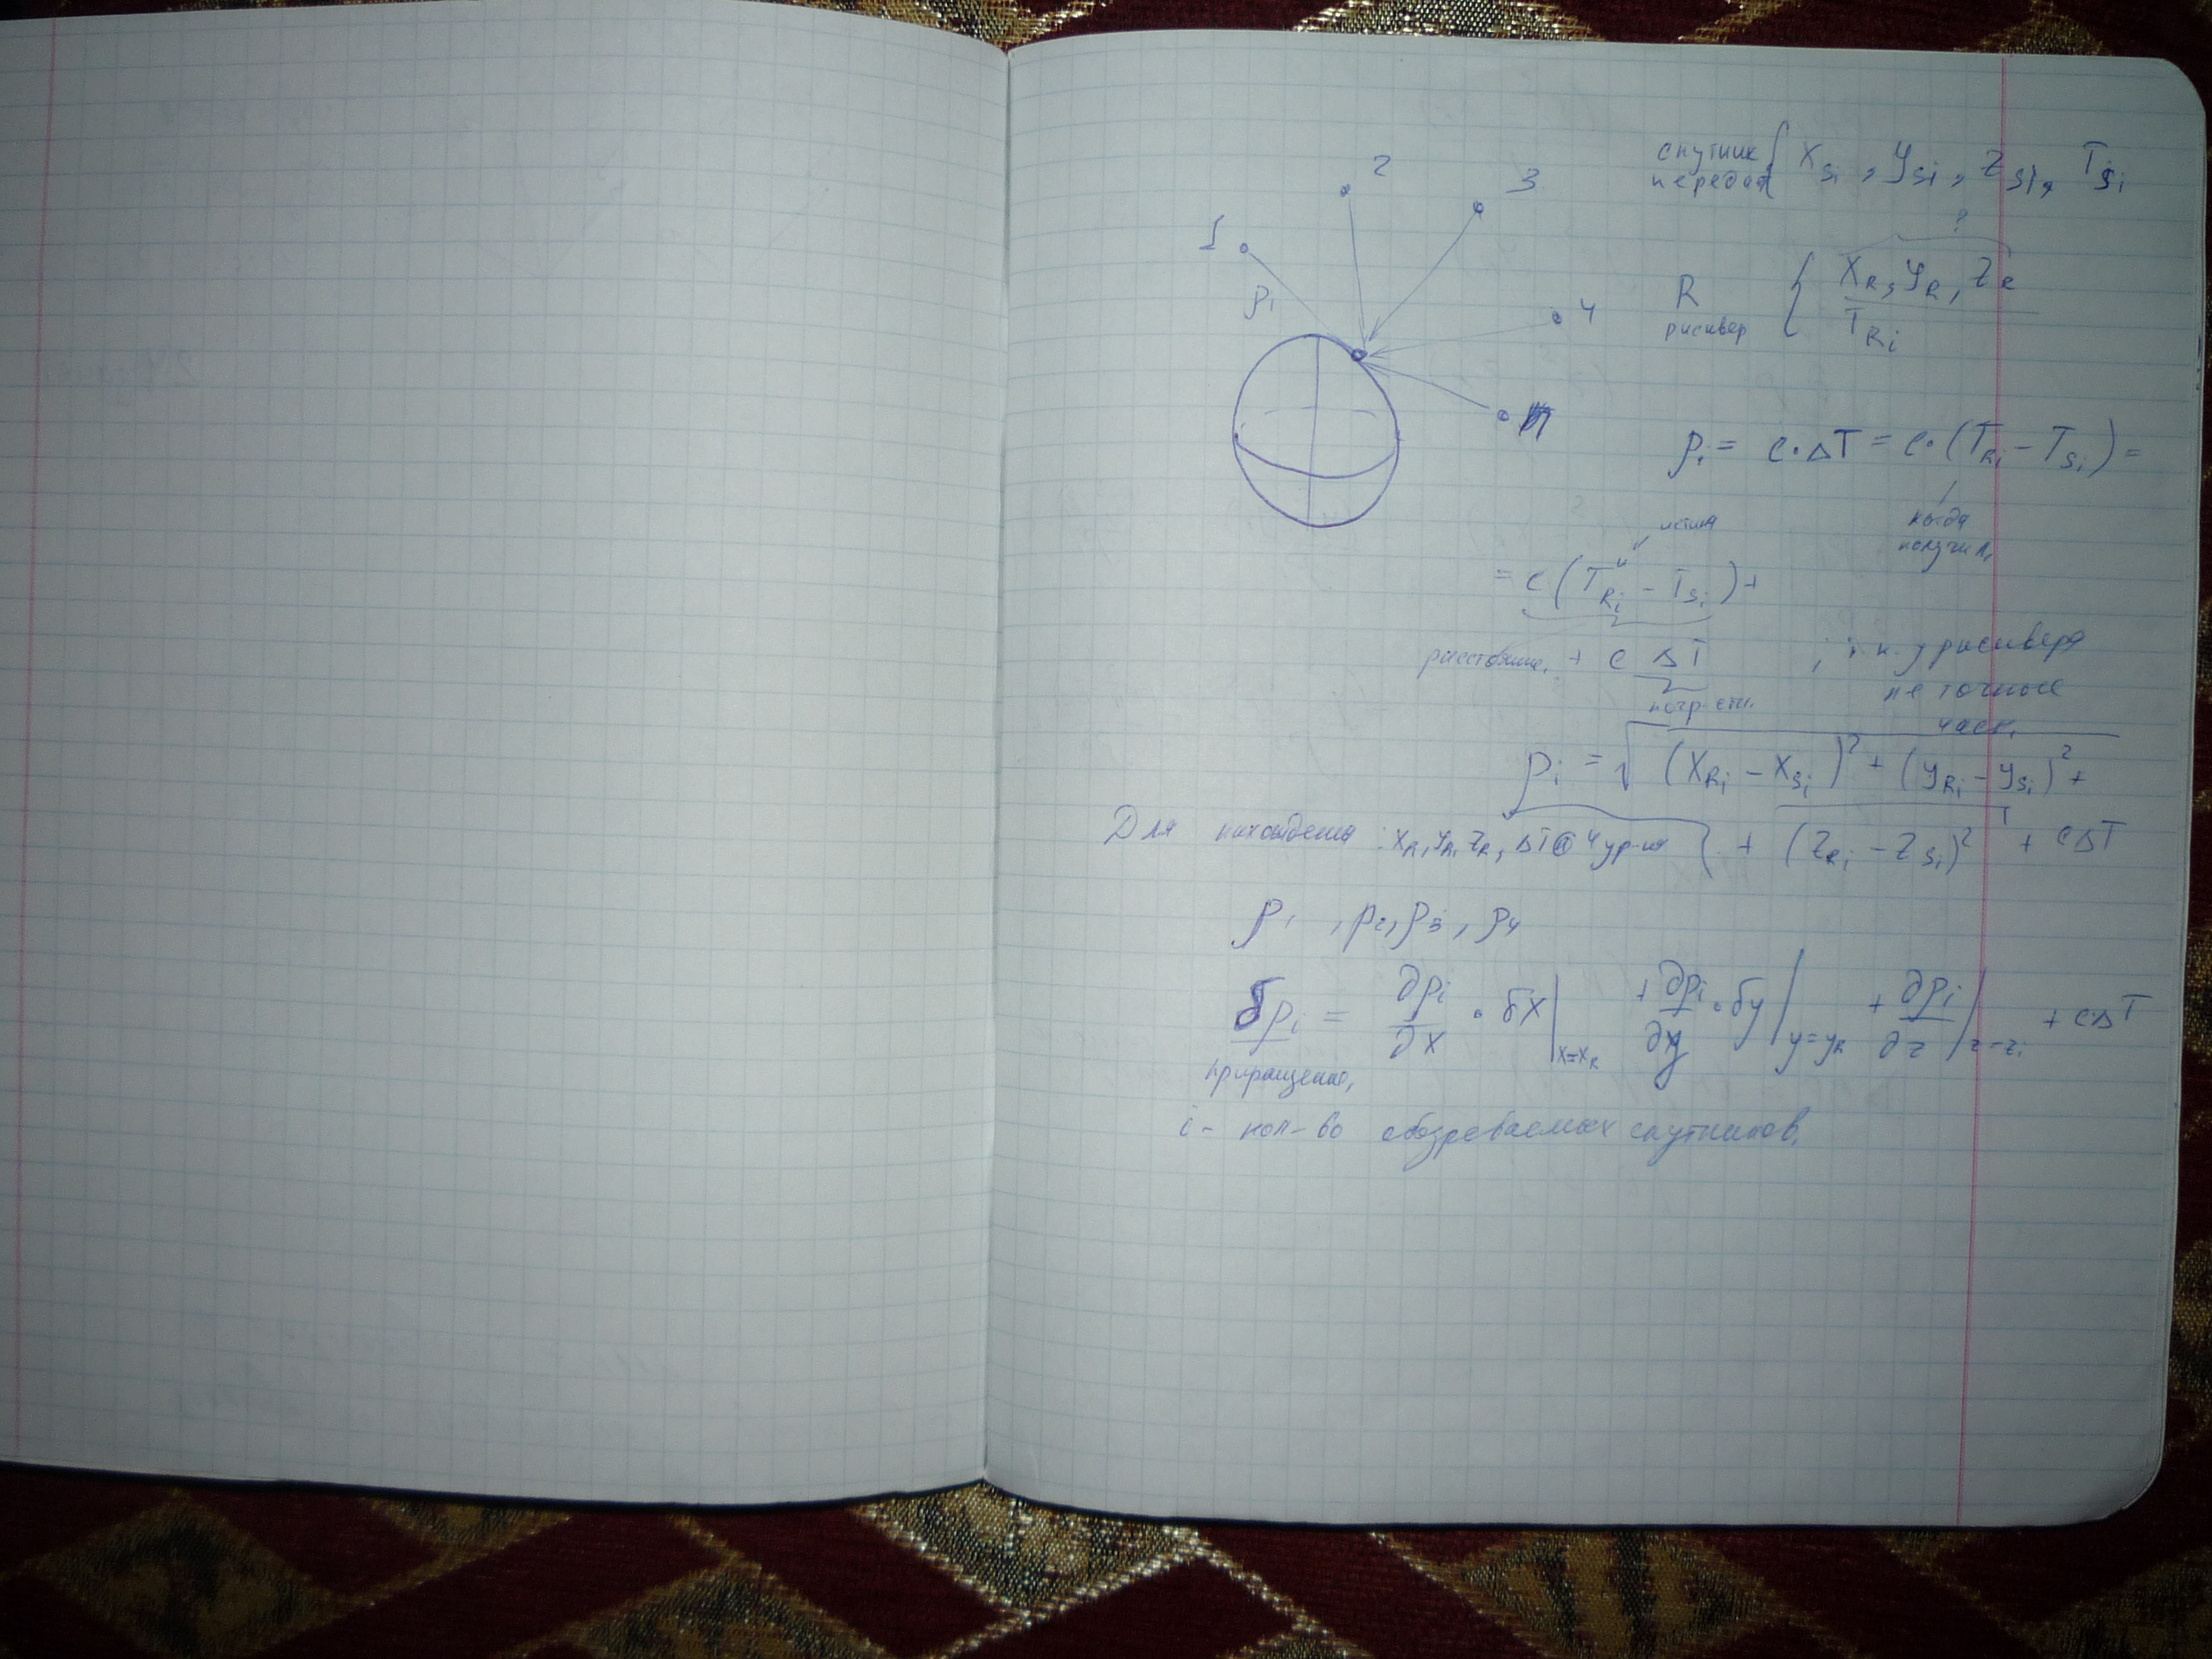 спутник передаёт { X_Si , y_Si , Z_Si , T_Si
?
R рисивер { X_R , y_R , Z_R
T_Ri
1
2
3
4
n
ρ_1
ρ_i = c·ΔT = c·(T_Ri − T_Si) =
когда
получил
истин
= c (T^и_Ri − T_Si) +
расстояние + c ΔT , т.к. у рисивера
не точные
часы
погр-сть
ρ_i = √ (X_Ri − X_Si)² + (y_Ri − y_Si)² +
Для нахождения : X_R, y_R, Z_R, ΔT 4 ур-ия { + (Z_Ri − Z_Si)² + cΔT
ρ_1 , ρ_2 , ρ_3 , ρ_4
δρ_i = ∂ρ_i/∂x · δx |_{x=x_R} + ∂ρ_i/∂y · δy |_{y=y_R} + ∂ρ_i/∂z |_{z=z_i} + cΔT
приращение
i - кол-во обозреваемых спутников.